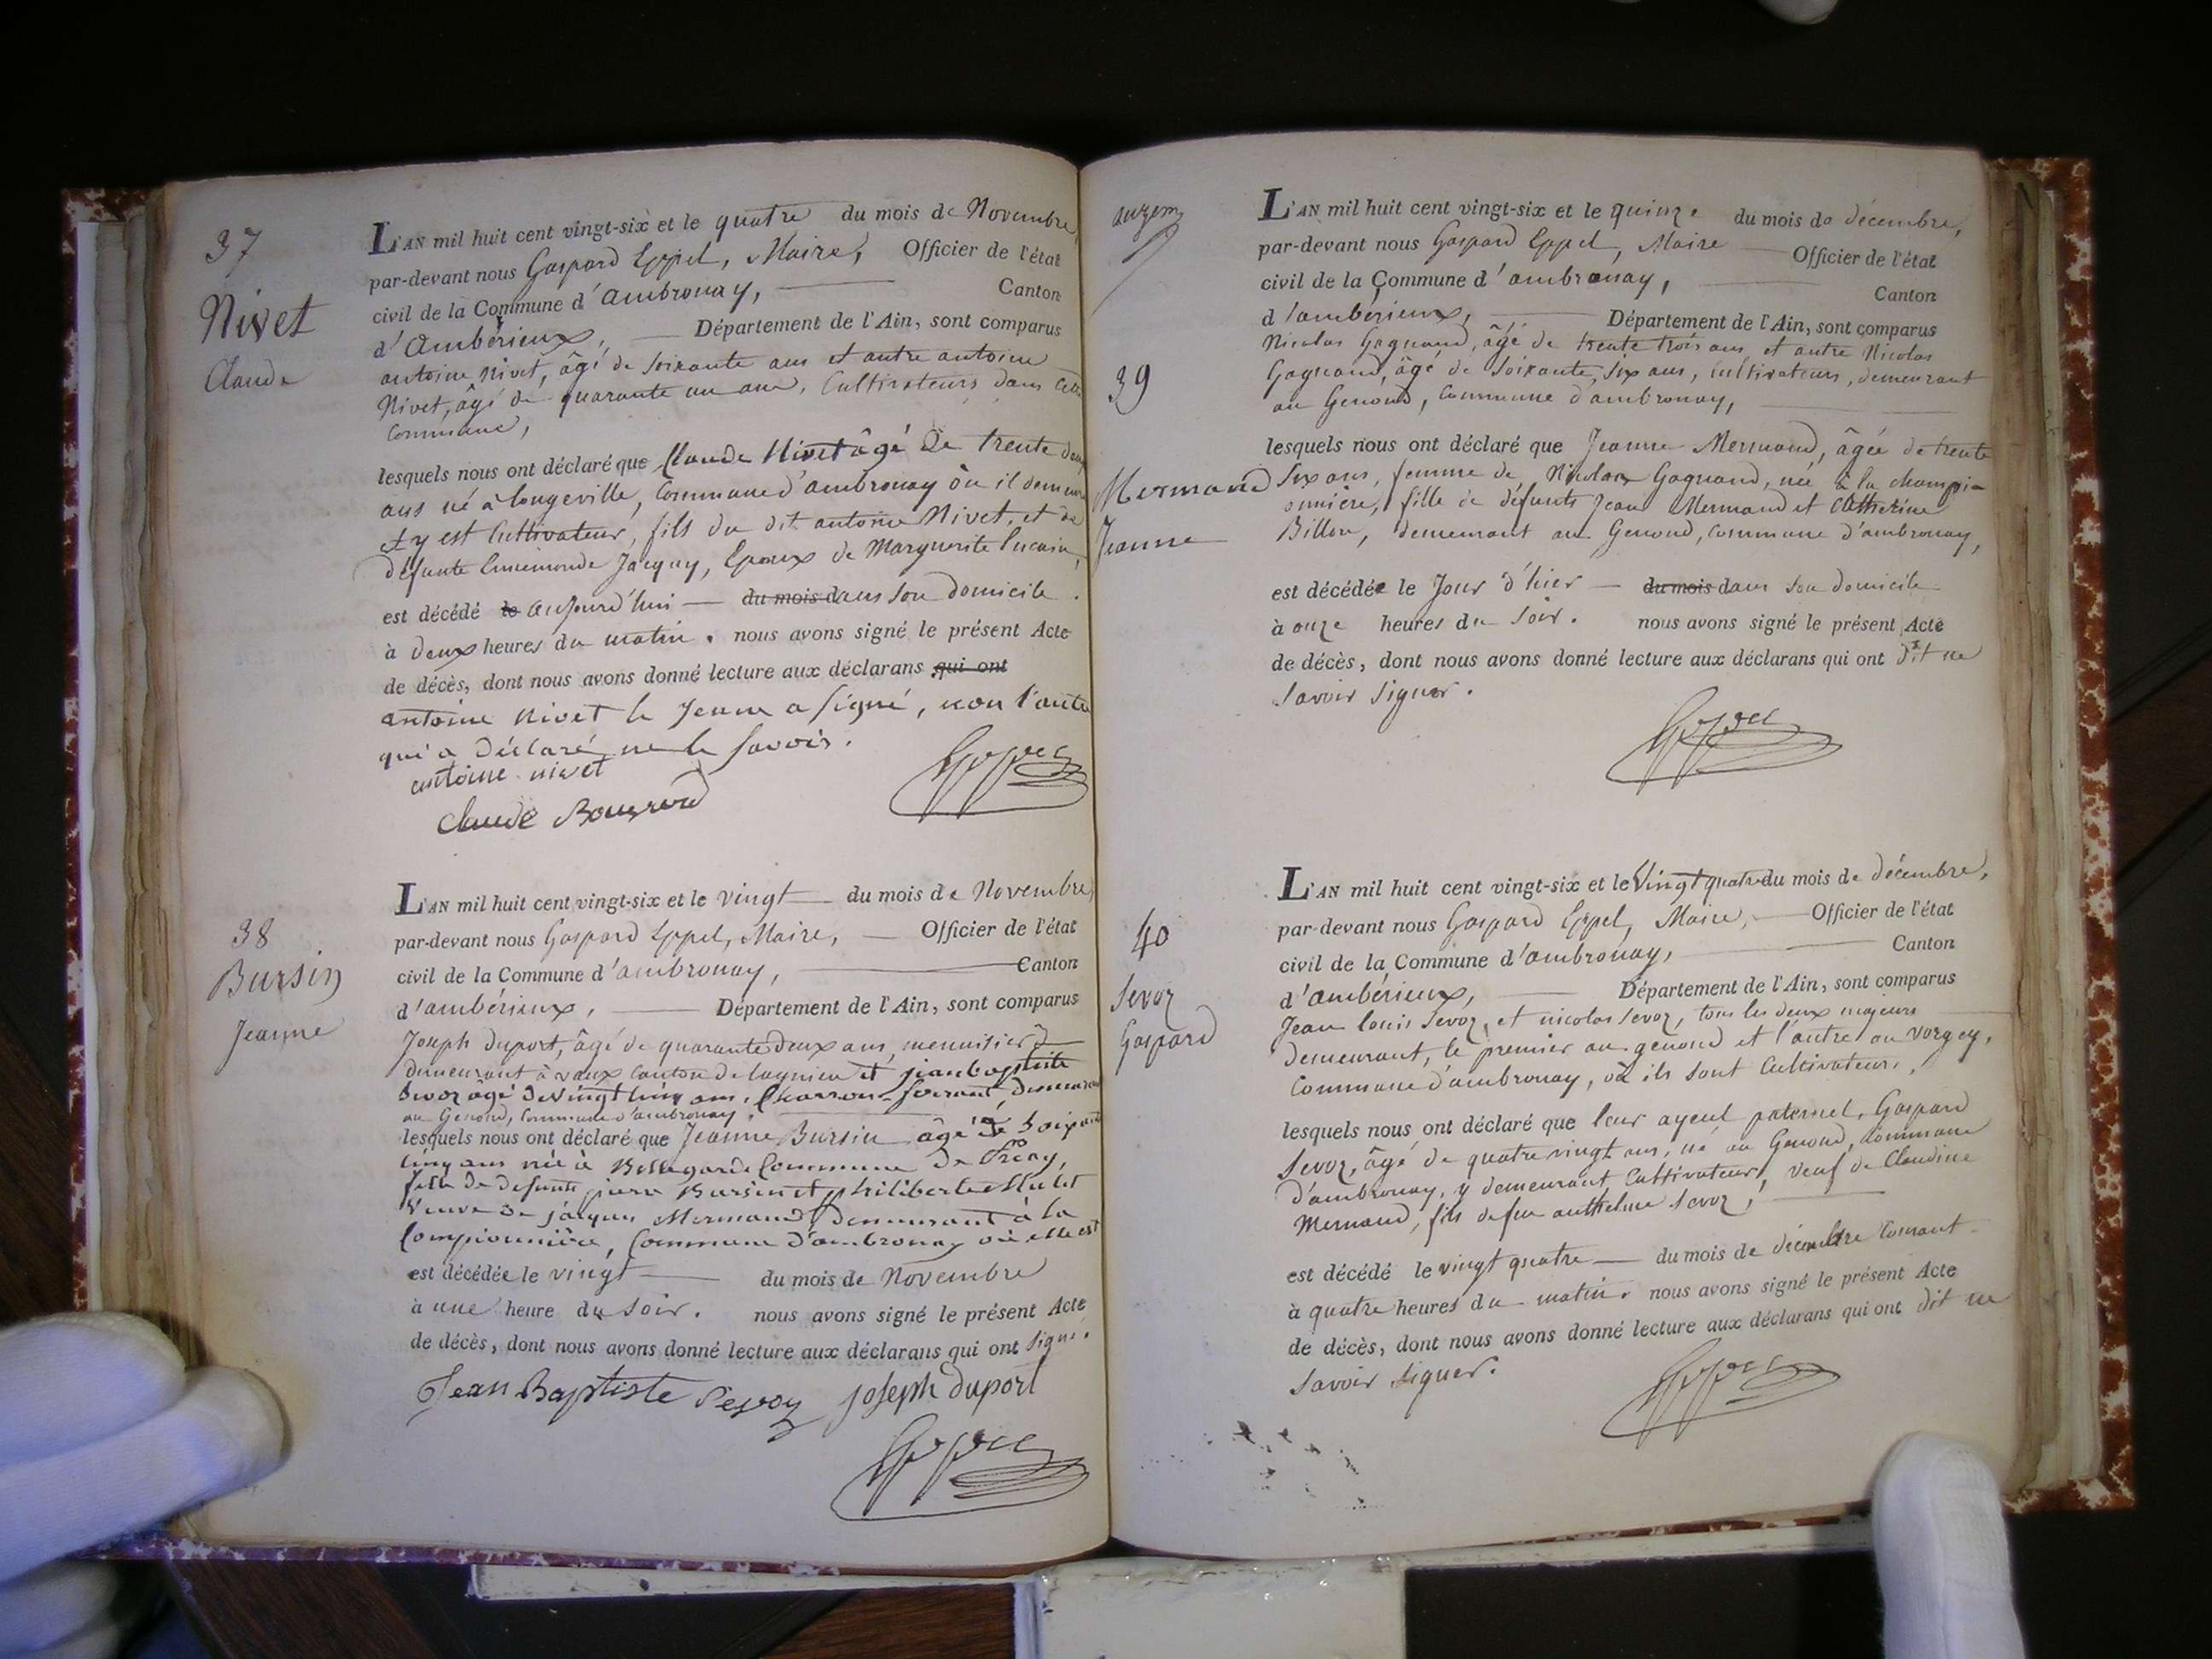 37
Nivet
Claude
L'AN mil huit cent vingt-six et le quatre du mois de Novembre,
par-devant nous Gaspard Eppel, Maire, Officier de l'état
civil de la Commune d'ambronay, Canton
d'Ambérieux, Département de l'Ain, sont comparus
antoine Nivet, âgé de soixante ans et autre antoine
Nivet, âgé de quarante un ans, Cultivateurs dans cette
Commune,
lesquels nous ont déclaré que Claude Nivet âgé De trente deux
ans né à longeville, Commune d'ambronay où il demeure
et y est Cultivateur, fils du dit antoine Nivet, et de
défunte Ennemonde Jacquy, Epoux de Marguerite
est décédé le aujourd'hui du mois dans son domicile.
à deux heures du matin. nous avons signé le présent Acte
de décès, dont nous avons donné lecture aux déclarans qui ont
antoine Nivet le Jeune a signé, non l'autre
qui a Déclaré ne le savoir.
antoine nivet
Claude
Eppel
38
Bursin
Jeanne
L'AN mil huit cent vingt-six et le vingt du mois de Novembre,
par-devant nous Gaspard Eppel, Maire, Officier de l'état
civil de la Commune d'ambronay, Canton
d'ambérieux, Département de l'Ain, sont comparus
Joseph Duport, âgé de quarante deux ans, menuisier
demeurant à vaux canton de lagnieu et jean baptiste
Sevoz âgé De vingt cinq ans, Charron demeurant
au Genoud, Commune d'ambronay.
lesquels nous ont déclaré que Jeanne Bursin âgé De Soixante
cinq ans née à Bellegarde Commune De
fille De defunts Bursin et philiberte Mulet
Veuve De jacques Mermand, Demeurant à la
Compionnière, Commune D'ambronay où elle est
est décédée le vingt du mois de Novembre
à une heure du soir. nous avons signé le présent Acte
de décès, dont nous avons donné lecture aux déclarans qui ont signé.
Jean Baptiste Sevoz Joseph Duport
Eppel
39
Mermand
Jeanne
L'AN mil huit cent vingt-six et le quinze du mois de décembre,
par-devant nous Gaspard Eppel, Maire Officier de l'état
civil de la Commune d'ambronay, Canton
d'ambérieux, Département de l'Ain, sont comparus
Nicolas Gagnand, âgé de trente trois ans et autre Nicolas
Gagnand, âgé de soixante six ans, cultivateurs, demeurant
au Genoud, Commune d'ambronay,
lesquels nous ont déclaré que Jeanne Mermand, âgée de trente
six ans, femme de Nicolas Gagnand, née à la champio-
nnière, fille de défunts Jean Mermand et Catherine
Billon, demeurant au Genoud, commune d'ambronay,
est décédée le Jour d'hier du mois dans son domicile
à onze heures du soir. nous avons signé le présent Acte
de décès, dont nous avons donné lecture aux déclarans qui ont dit ne
savoir signer.
Eppel
40
Sevoz
Gaspard
L'AN mil huit cent vingt-six et le Vingt quatre du mois de décembre,
par-devant nous Gaspard Eppel, Maire, Officier de l'état
civil de la Commune d'ambronay, Canton
d'ambérieux, Département de l'Ain, sont comparus
Jean louis Sevoz, et nicolas Sevoz, tous les deux majeurs
demeurant, le premier au genoud et l'autre au vorgey,
Commune d'ambronay, où ils sont Cultivateurs,
lesquels nous ont déclaré que leur ayeul paternel, Gaspard
Sevoz, âgé de quatre vingt ans, né au Genoud, Commune
d'ambronay, y demeurant, Cultivateur, veuf de Claudine
Mermand, fils de feu anthelme Sevoz,
est décédé le vingt quatre du mois de décembre Courant
à quatre heures du matin. nous avons signé le présent Acte
de décès, dont nous avons donné lecture aux déclarans qui ont dit ne
savoir signer.
Eppel